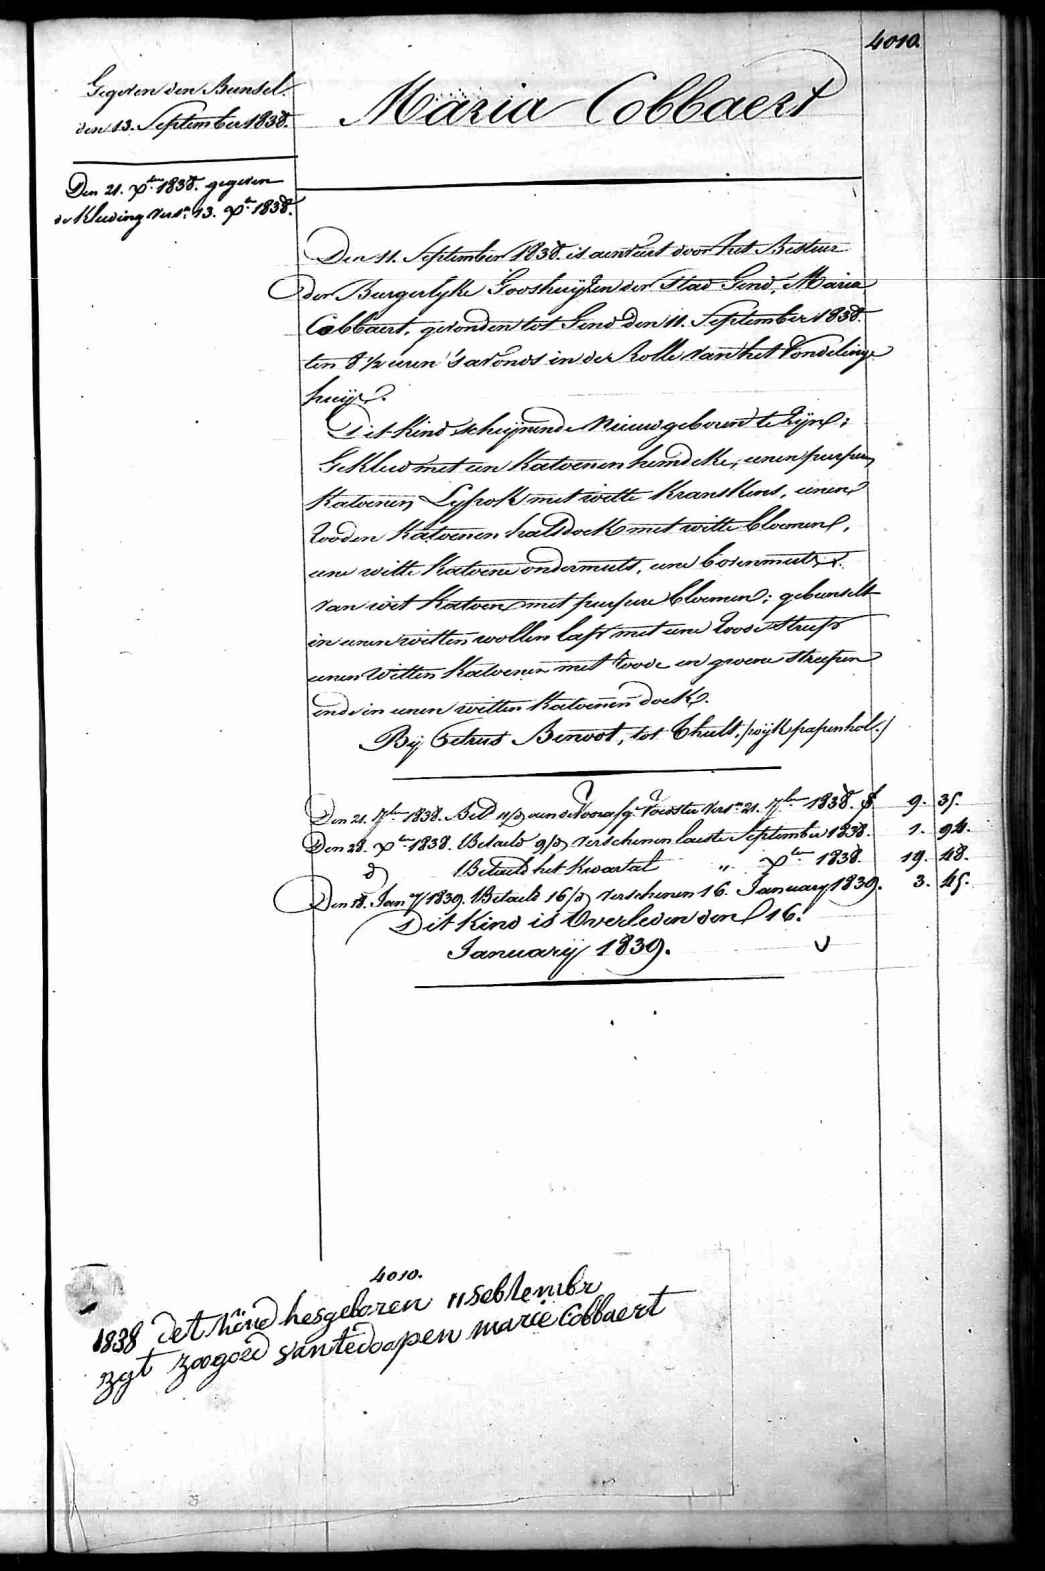 4010.
Gegeven den Bunsel.
den 13. September 1838.
Den 21. Xber 1838. gegeven
de Kleeding versn. 13. Xber 1838.
Maria Cobbaert
Den 11. September 1838. is aenveirt door het Bestuur
der Burgerlyke Godshuyzen der Stad Gend, Maria
Cobbaert, gevonden tot Gend den 11. September 1838.
ten 8 1/2 uren 's avonds in de Rolle van het Vondelinge
huijs.
Dit Kind schynende Nieuwgeboren te Zyn;
Gekleed met een Katoenen hemdeke, eenen purpuren
Katoenen Lyfrok met witte Kranskens, eenen
Rooden Katoenen halsdoek met witte bloemen,
eene witte Katoene ondermuts, eene bovenmuts
van wit Katoen met purpure bloemen; gebunselt
in eenen witten wollen lap met eene Roode streep
eenen Witten Katoenen met roode en groene streepen
ende in eenen witten Katoenen doek.
By Petrus Benoot, tot Thielt, (wyk papenhol.)
Den 21. 7ber 1838. Betd 11/d aen de Voorafg. Voedster versn. 21. 7ber 1838. f 9. 35.
Den 28. Xber 1838. Betaeld 9/d verschenen laeste September 1838. 1. 94.
d Betaeld het Kwartael " Xber 1838. 19. 48.
Den 18. Jany 1839. Betaeld 16/d verschenen 16. January 1839. 3. 45.
Dit Kind is Overleden den 16.
Januarij 1839.
4010.
1838 det Kind hesgeboren 11 Sebtembr
zgt zoogoed van tedoopen marie Cobbaert